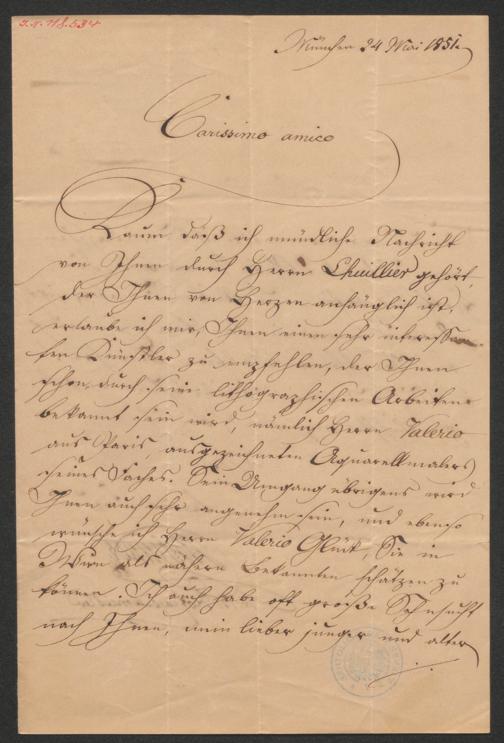 I.N. 118.534
München 24 Mai 1851.
Carissimo amico
Kaum daß ich mündliche Nachricht
von Ihnen durch Herrn Lhuillier gehört,
der Ihnen von Herzen anhänglich ist,
erlaube ich mir, Ihnen einen sehr interessan-
ten Künstler zu empfehlen, der Ihnen
schon durch seine lithographischen Arbeiten
bekannt sein wird, nämlich Herrn Valerio
aus Paris, ausgezeichneten Aquarellmalers
seines Faches. Sein Umgang übrigens wird
Ihnen auch sehr angenehm sein, und ebenso
wünsche ich Herrn Valerio Glück, Sie in
Wien als nähern Bekannten schätzen zu
können. Ich auch habe oft große Sehnsucht
nach Ihnen, mein lieber junger und alter